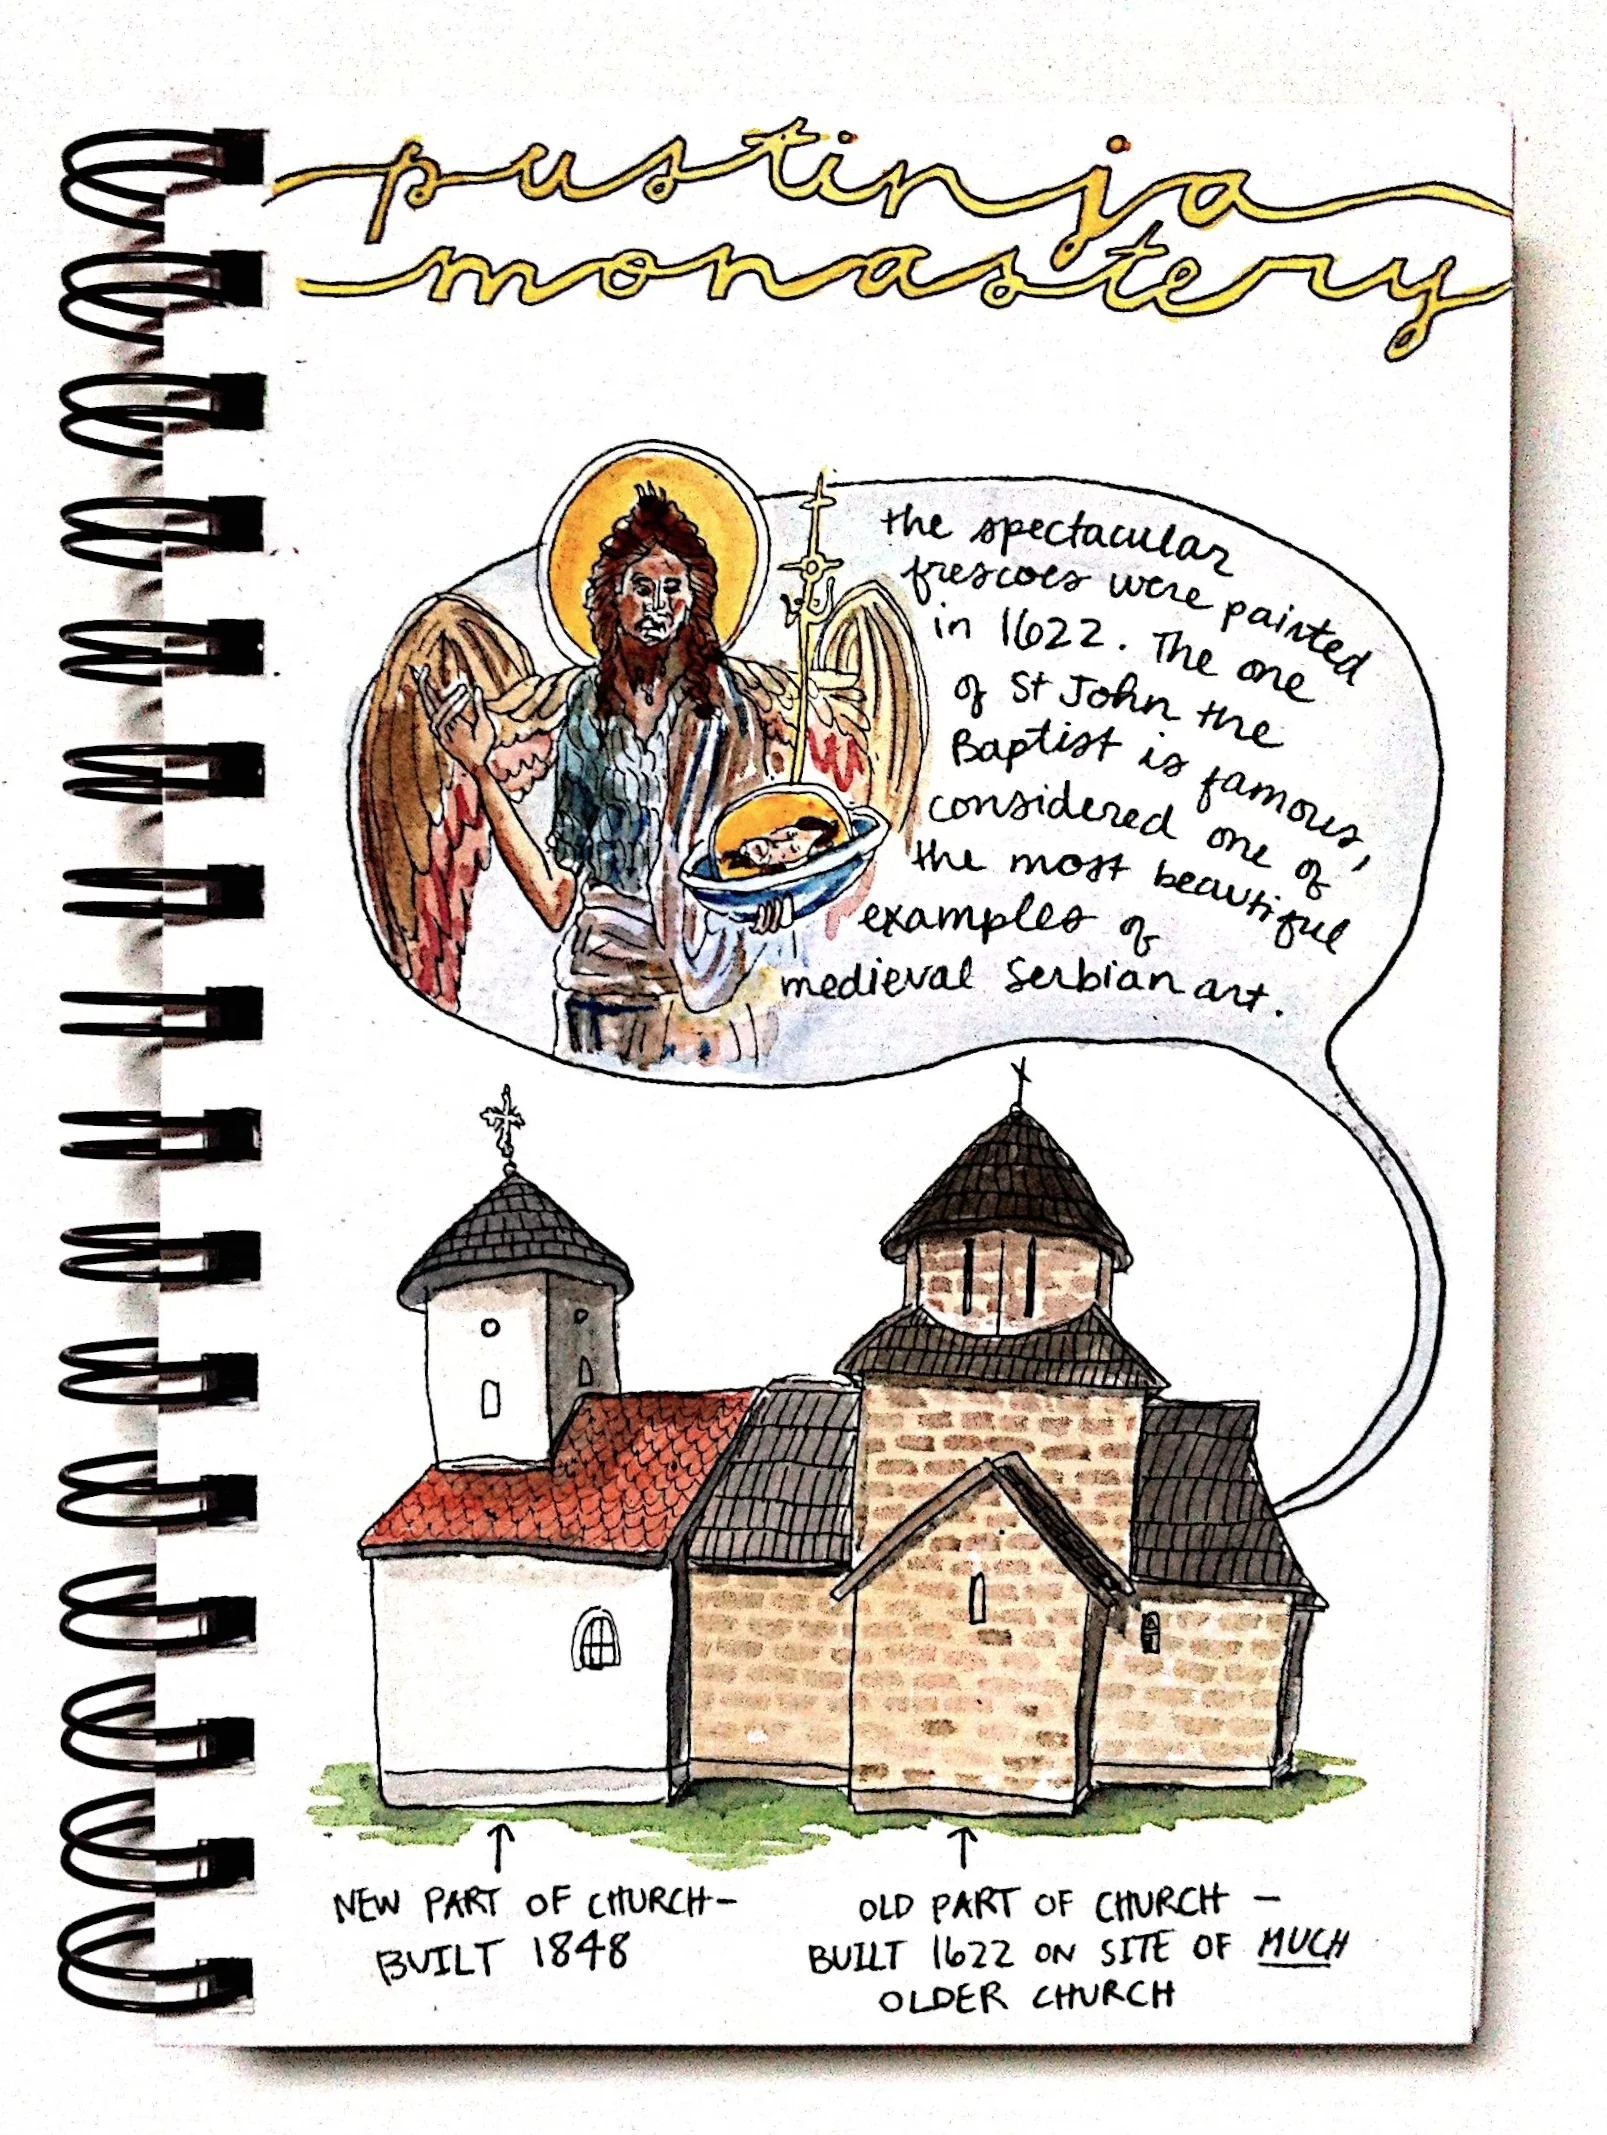 pustinja
monastery
the spectacular
frescoes were painted
in 1622. The one
of St John the
Baptist is famous,
considered one of
the most beautiful
examples of
medieval Serbian art.
NEW PART OF CHURCH-
BUILT 1848
OLD PART OF CHURCH -
BUILT 1622 ON SITE OF MUCH
OLDER CHURCH